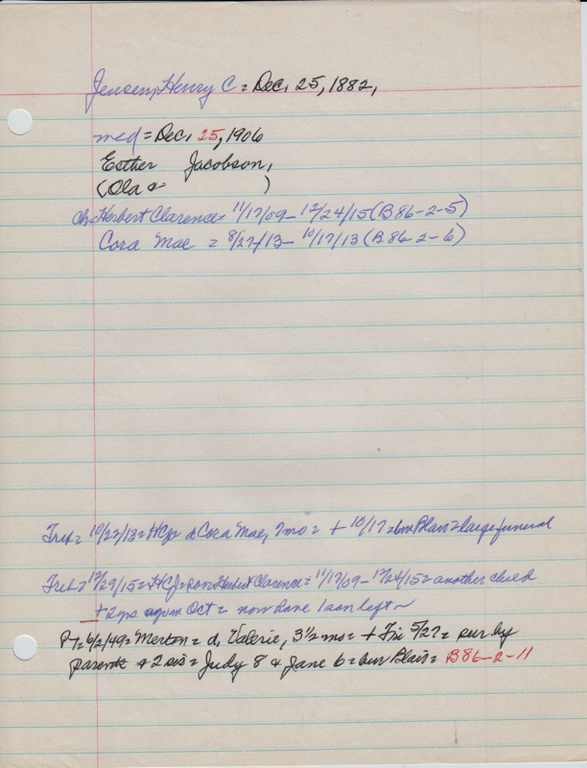 Jensen, Henry C = Dec. 25, 1882,
med = Dec. 25, 1906
Esther Jacobson,
(Ola & )
ch. Herbert Clarence = 11/17/09 - 12/24/15 (B86-2-5)
Cora Mae = 8/27/13 - 10/17/13 (B86-2-6)
10/22/13 = HCJ d Cora Mae, 2mo = + 10/17 = bur Blair = large funeral
12/29/15 = HCJ = son Herbert Clarence = 11/17/09 - 12/24/15 = another child
+ 2 yrs ago in Oct = now have 1 son left ~
PT = 6/2/49 = Merton = d. Valerie, 3½ mo = + Fri 5/27 = sur by
parents & 2 sis = Judy 8 & Jane 6 = bur Blair = B86-2-11